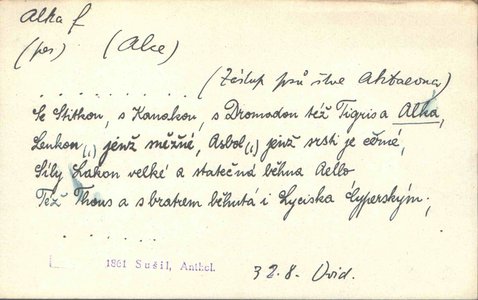 Alka f
(pes) (Alce)
. . . . . . . . . . (Zástup psů štve Aktaeona)
Se Stikton, s Kanakou, s Dromadon též Tigris a Alka,
Leukon(,) jenž sněžné, Asbol(,) jenž srsti je černé,
Silý Lakon velké a statečná běhna Aello
Též Thous a s bratrem běhutá i Lyciska Cyperským;
. . . . . .
1861 Sušil, Anthol. 32.8. Ovid.